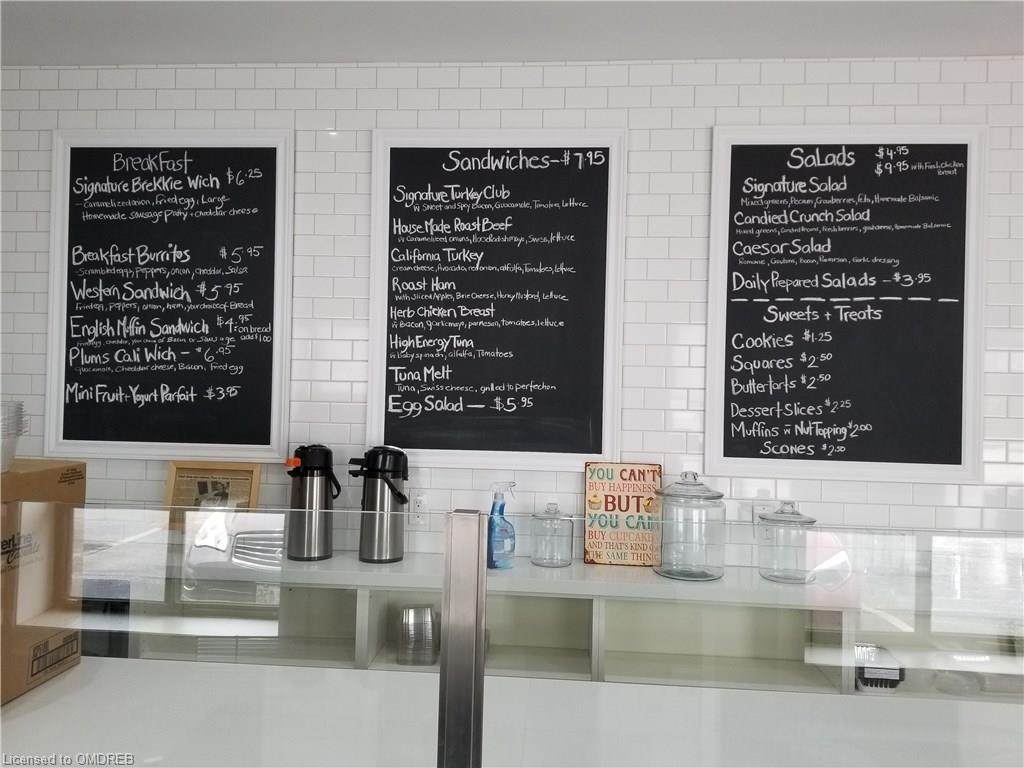 BreakFast
Signature Brekkie Wich $6.25
- Caramelized onion, Fried egg, Large
Homemade Sausage Patty + cheddar cheese
Breakfast Burritos $5.95
- Scrambled eggs, Peppers, onion, cheddar, Salsa
Western Sandwich $5.95
Fried egg, Peppers, onion, Ham, your choice of Bread
English Muffin Sandwich $4.95
+ on bread
add $1.00
Fried egg, cheddar, your choice of Bacon or Sausage
Plums Cali Wich - $6.95
Guacamole, Cheddar cheese, Bacon, Fried egg
Mini Fruit + Yogurt Parfait $3.95
Sandwiches - $7.95
Signature Turkey Club
w Sweet and Spicy Bacon, Guacamole, Tomatoes, Lettuce
House Made Roast Beef
w Caramelized onions, Horseradish mayo, Swiss, lettuce
California Turkey
cream cheese, Avocado, red onion, alfalfa, Tomatoes, lettuce
Roast Ham
with Sliced Apples, Brie Cheese, Honey Mustard, Lettuce
Herb Chicken Breast
w Bacon, garlic mayo, parmesan, tomatoes, lettuce
High Energy Tuna
w baby spinach, alfalfa, Tomatoes
Tuna Melt
Tuna, Swiss cheese, grilled to perfection
Egg Salad - $5.95
Salads $4.95
$9.95 with Fresh Chicken
breast
Signature Salad
Mixed greens, Pecans, Cranberries, Feta, Homemade Balsamic
Candied Crunch Salad
Mixed greens, fresh berries, goat cheese, Homemade Balsamic
Caesar Salad
Romaine, Croutons, Bacon, Parmesan, Garlic dressing
Daily Prepared Salads - $3.95
Sweets + Treats
Cookies $1.25
Squares $2.50
Buttertarts $2.50
Dessert Slices $2.25
Muffins w Nut Topping $2.00
Scones $2.50
YOU CAN'T
BUY HAPPINESS
BUT
YOU CAN
BUY CUPCAKES
AND THAT'S KIND OF
THE SAME THING
Licensed to OMDREB